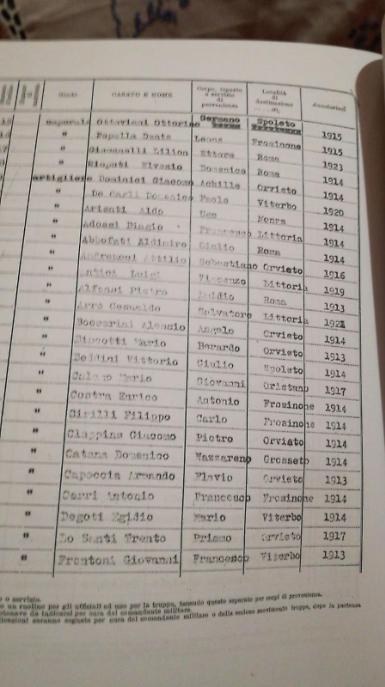 Grado CASATO E NOME Corpo, reparto o servizio di provenienza Località di destinazione Annotazioni
caporale Ottaviani Ottorino Germano Spoleto 1915
" Papella Dante Leone Frosinone 1915
" Ettore Roma 1923
" Domenico Roma 1914
artigliere Dominici Giacomo Achille Orvieto 1914
" De Carli Domenico Paolo Viterbo 1920
" Arienti Aldo Ugo 1914
" Adossi Biagio Francesco Littoria 1914
" Abbofati Aldimiro Giulio Roma 1914
" Attilio Sebastiano Orvieto 1916
" Luigi Vincenzo Littoria 1919
" Alfonsi Pietro Roma 1913
" Salvatore Littoria
" Boccarini Alessio Angelo Orvieto 1914
" Mario Berardo Orvieto 1913
" Vittorio Giulio Spoleto 1914
" Mario Giovanni Oristano 1917
" Costra Enrico Antonio Frosinone 1914
" Cirilli Filippo Carlo Frosinone 1914
" Ciappina Giacomo Pietro Orvieto 1914
" Catana Domenico Nazzareno Grosseto 1914
" Capoccia Armando Flavio Orvieto 1913
" Cerri Antonio Francesco Frosinone 1914
" Degoti Egidio Mario Viterbo 1914
" Lo Santi Trento Primo Orvieto 1917
" Frontoni Giovanni Francesco Viterbo 1913
o o servizio.
un ruolino per gli ufficiali ed uno per la truppa, tenendo questo separato per corpi di provenienza.